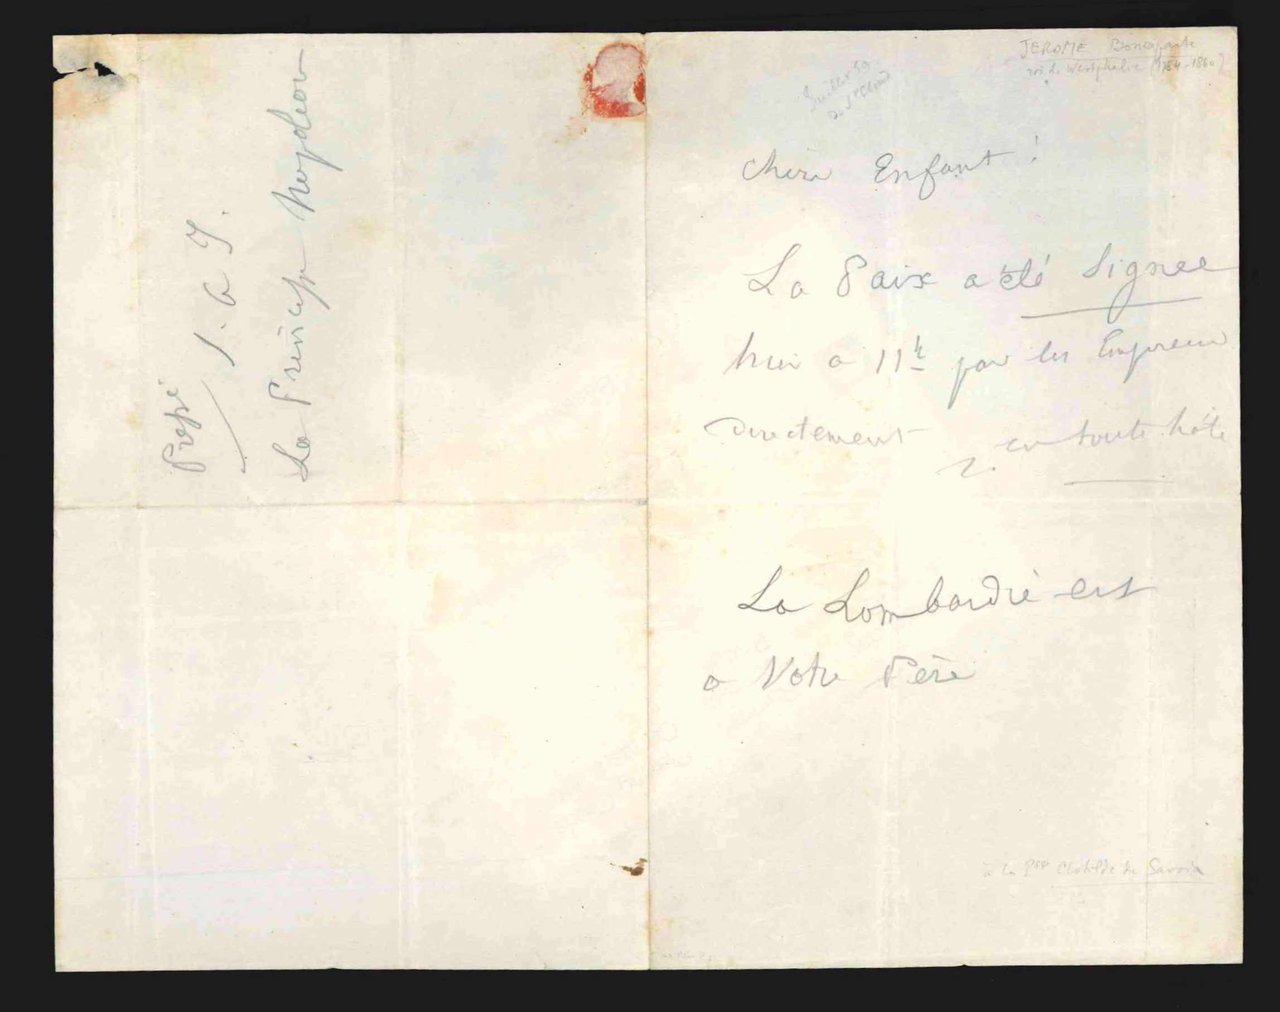 Pressé
S. A. I.
La Princesse Napoléon
JEROME Bonaparte
roi de Westphalie (1784-1860)
Juillet 59
De St Cloud
Chère Enfant !
La Paix a été Signée
hier a 11h par les Empereurs
Directement
en toute hâte
La Lombardie est
a Votre Père
à la Psse Clotilde de Savoie